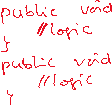 public void
//logic
}
public void
//logic
}